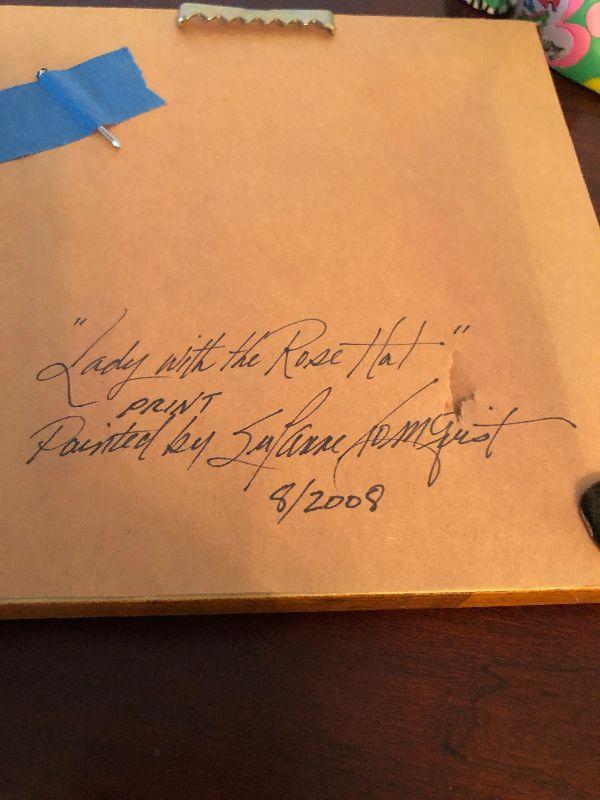 "Lady with the Rose Hat"
PRINT
Painted by SuZanne
8/2008